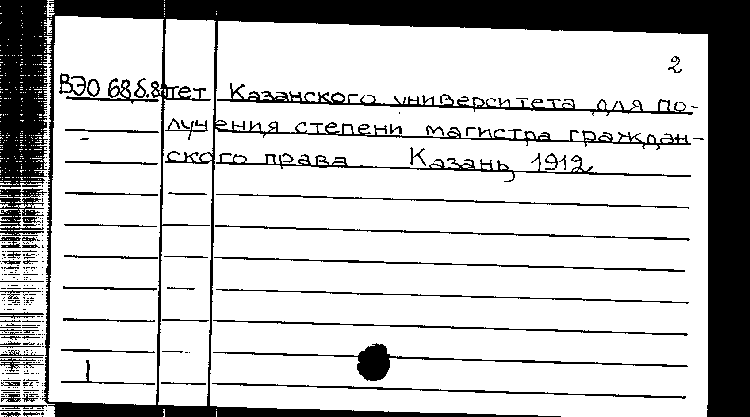 2
ВЭО 68,б.8 тет Казанского университета для по-
лучения степени магистра граждан-
ского права. Казань, 1912.